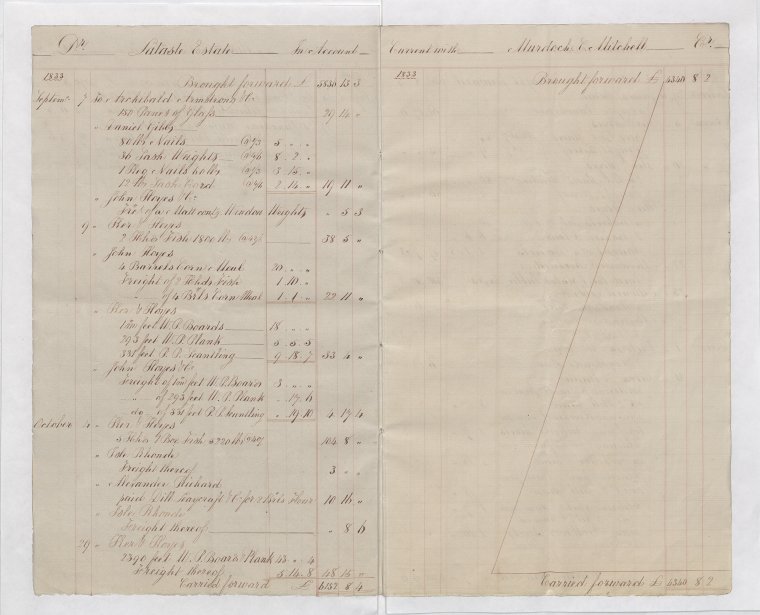 Dr. Sataste Estate In Account
1833
Brought forward £ 3830 13 3
Septemr. 7 To Archibald Armstrong & Co.
150 Panes of Glass 29 14 "
" Daniel Gibbs
80 lbs Nails @ 1/3 5 " "
36 Sash Weights 8 . 2 . "
1 Keg Nails 3 15 "
12 lbs Sash Cord 2 14 " 19 11 "
" John Hoyes & Co.
Frt. of a Matt contg. Window Weights " 5 3
9 " Ker & Hoyes
2 Hhds Fish 1800 lbs 38 5 "
" John Hoyes
4 Barrels Corn Meal 20 " "
Freight of 2 Hhds Fish 1 10 "
" of 4 Brls Corn Meal 1 1 " 22 11 "
" Ker & Hoyes
feet W. P. Boards 18 " "
293 feet W. P. Plank 5 5 5
331 feet P. P. Scantling 9 18 7 33 4 "
" John Hoyes & Co.
Freight of feet W. P. Boards 3 " "
" of 293 feet W. P. Plank " 17 6
do of 331 feet P. P. Scantling " 19 10 4 17 4
October 4 " Ker & Hoyes
5 Hhds & Box Fish 5220 lbs 104 8 "
" Rhonde
Freight thereof 3 " "
" Alexander Richard
paid Dill Seycraft & Co. for 2 Brls Flour 10 16 "
" Rhonde
Freight thereof " 8 6
29 " Ker & Hoyes
1390 feet W. P. Board & Plank 43 " 4
Freight thereof 5 14 8 48 15 "
Carried forward £ 4152 8 4
Current with Murdoch & Mitchell Cr.
1833
Brought forward £ 4340 8 2
Carried forward £ 4340 8 2